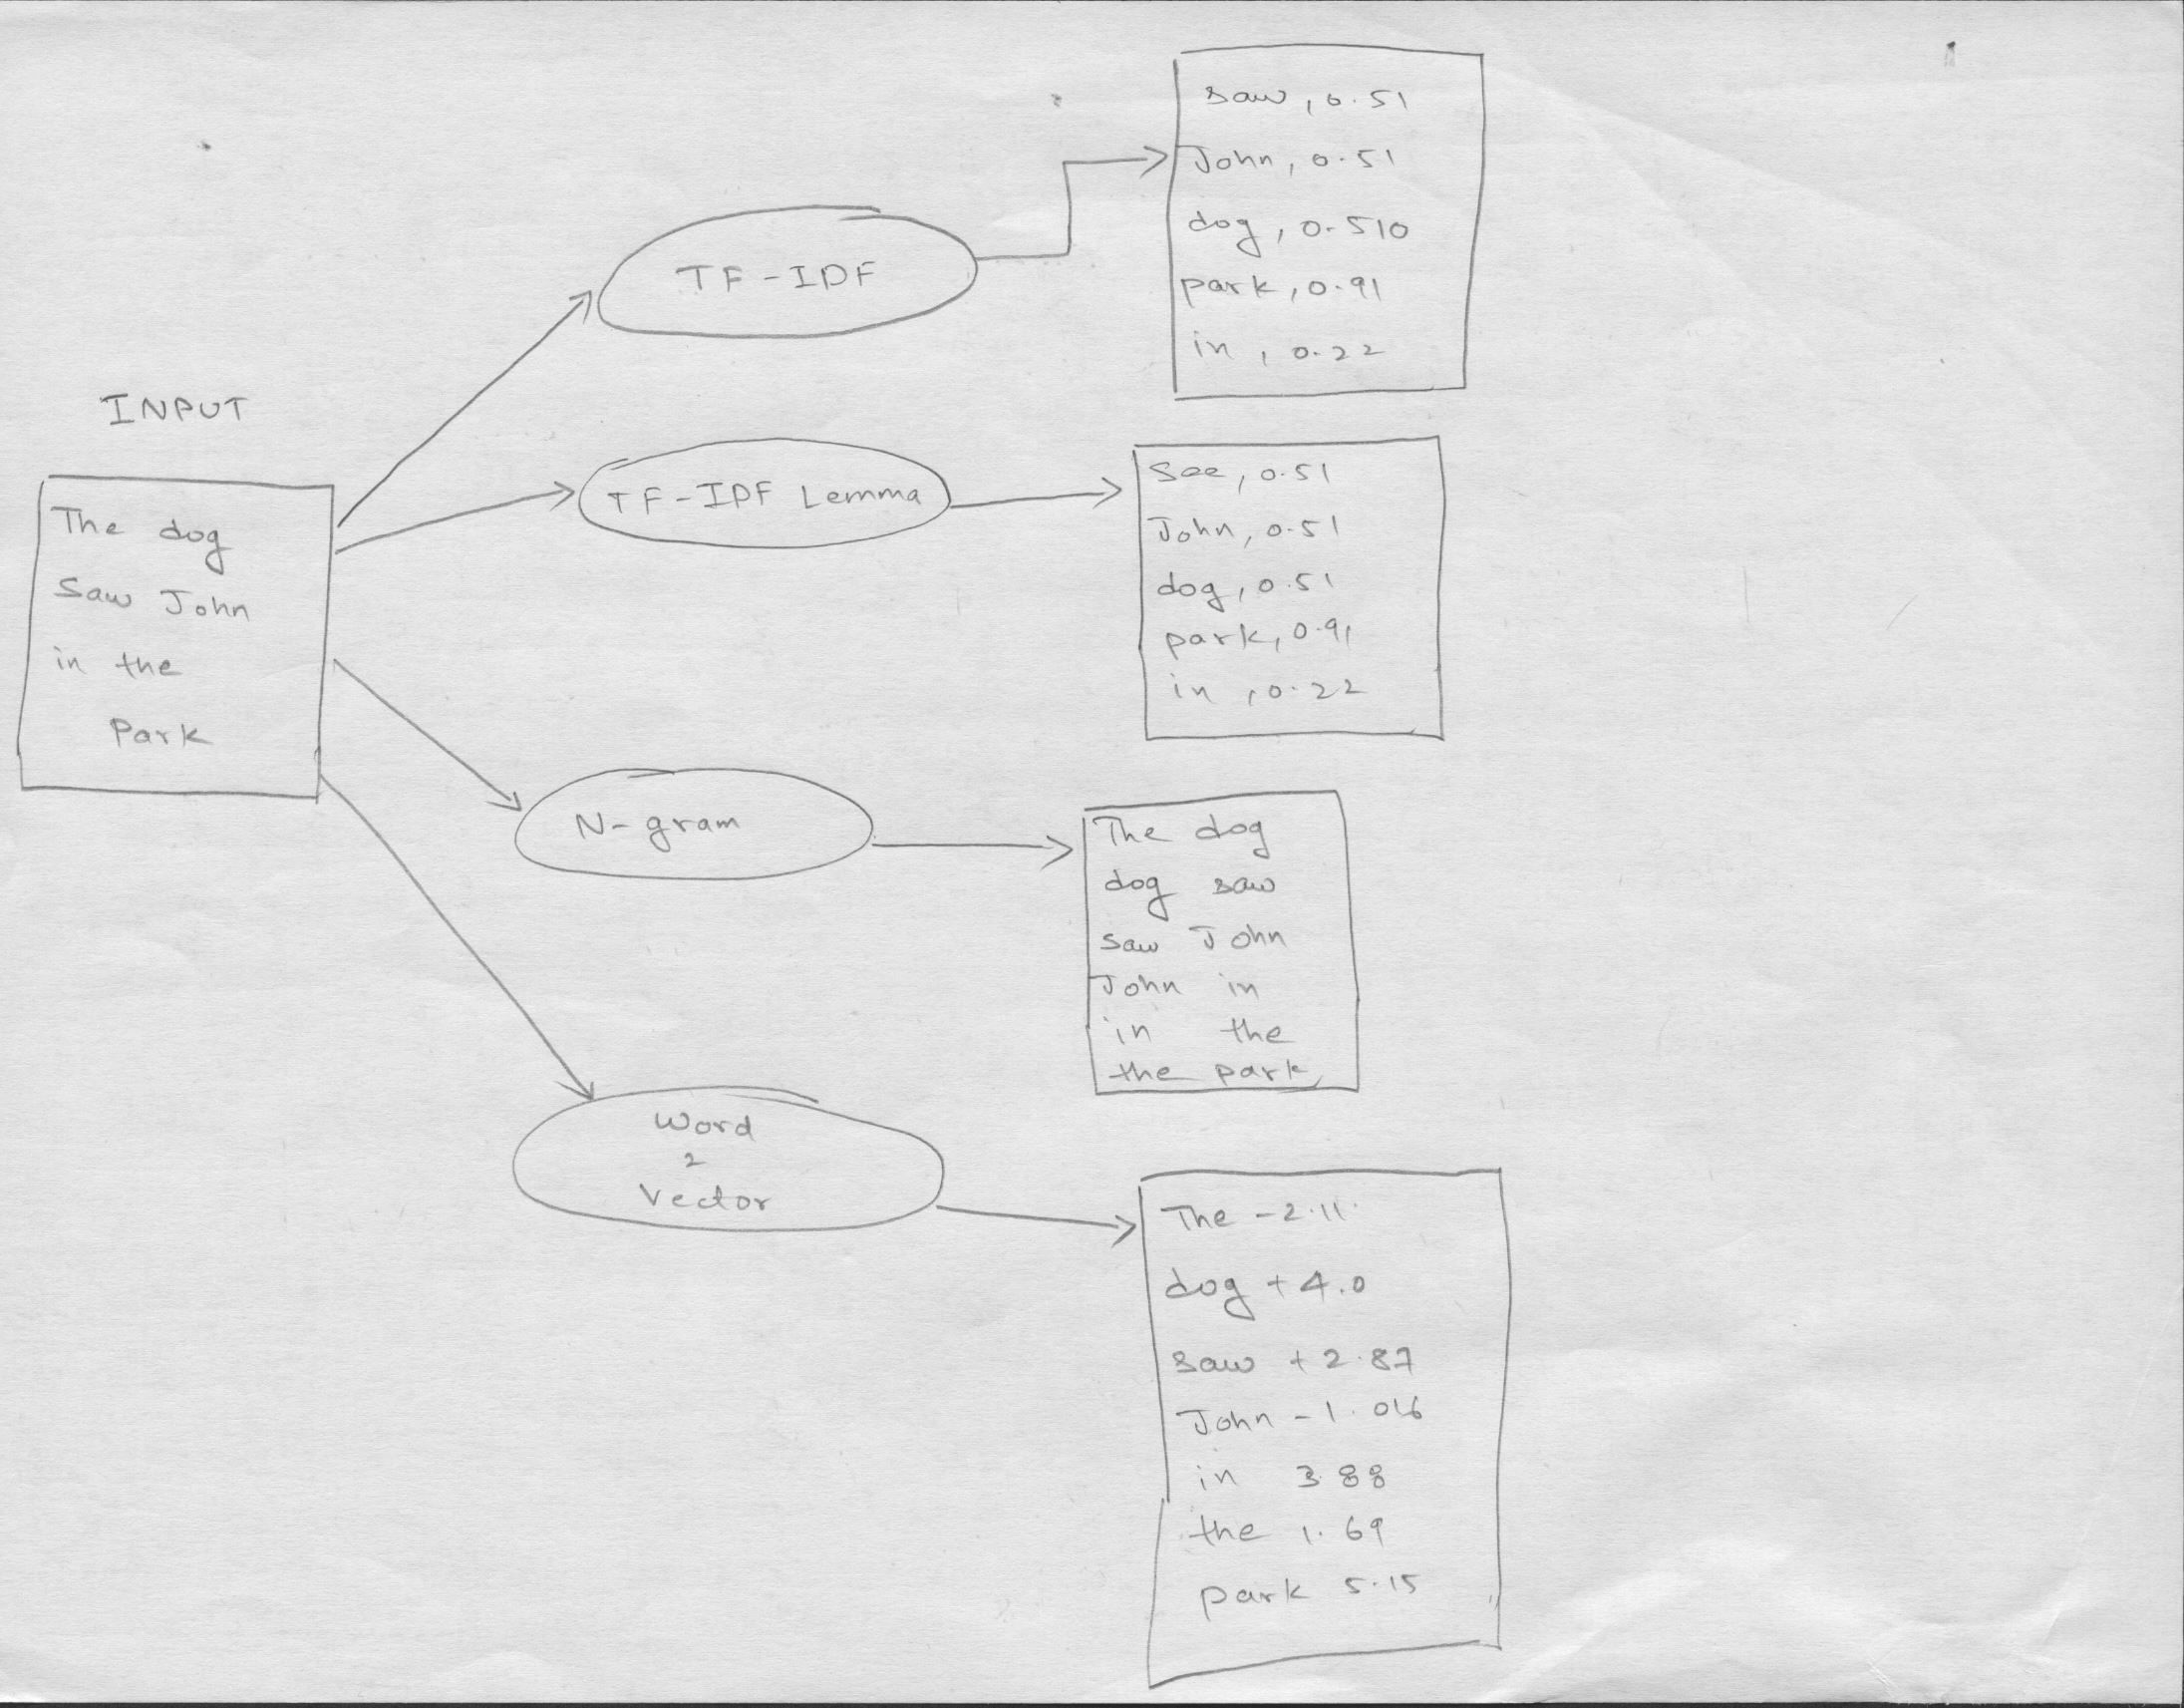 INPUT
The dog
Saw John
in the
Park
TF-IDF
saw, 0.51
John, 0.51
dog, 0.510
park, 0.91
in, 0.22
TF-IDF Lemma
See, 0.51
John, 0.51
dog, 0.51
park, 0.91
in, 0.22
N-gram
The dog
dog saw
saw John
John in
in the
the park
Word
2
Vector
The -2.11
dog +4.0
saw +2.87
John -1.016
in 3.88
the 1.69
park 5.15